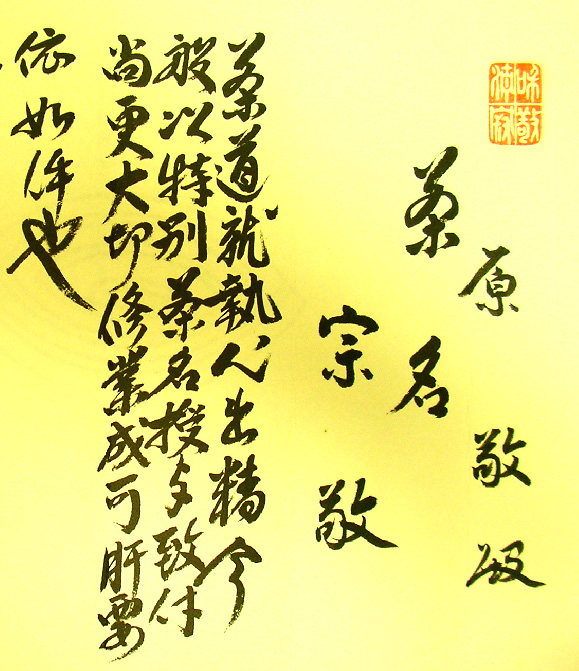 和敬清寂
原敬殿
茶名
宗敬
茶道就執心出精今
般以特別茶名授与致付
尚更大切修業成可肝要
依如件也